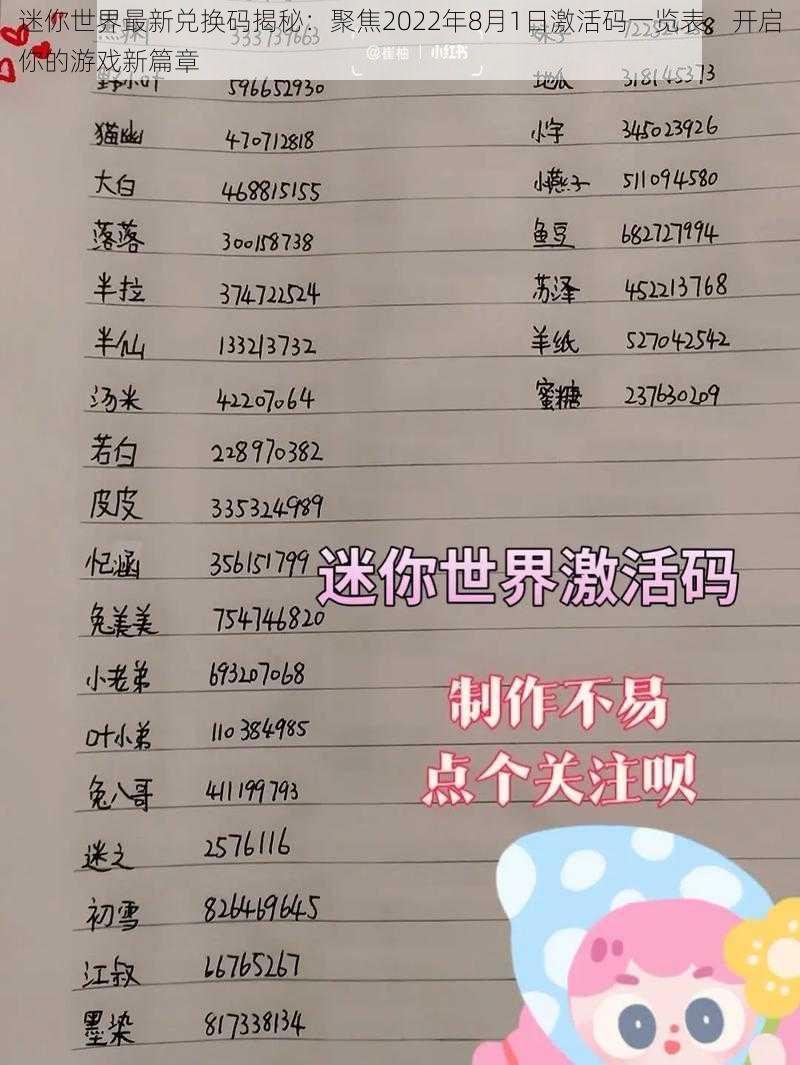 迷你世界最新兑换码揭秘：聚焦2022年8月1日激活码一览表，开启
你的游戏新篇章
@崔柚 | 小红书
野小叶 596652930
地瓜 318145373
猫幽 470712818
小字 345023926
大白 468815155
小燕子 511094580
落落 300158738
鱼豆 682727994
半拉 374722524
苏泽 452213768
半仙 133213732
羊纸 527042542
汤米 42207064
蜜糖 237630209
若白 228970382
皮皮 335324989
忆涵 356151799
迷你世界激活码
兔美美 754746820
小老弟 693207068
制作不易
叶小弟 110384985
点个关注呗
兔八哥 411199793
迷之 2576116
初雪 826469645
江叔 66765267
墨染 817338134